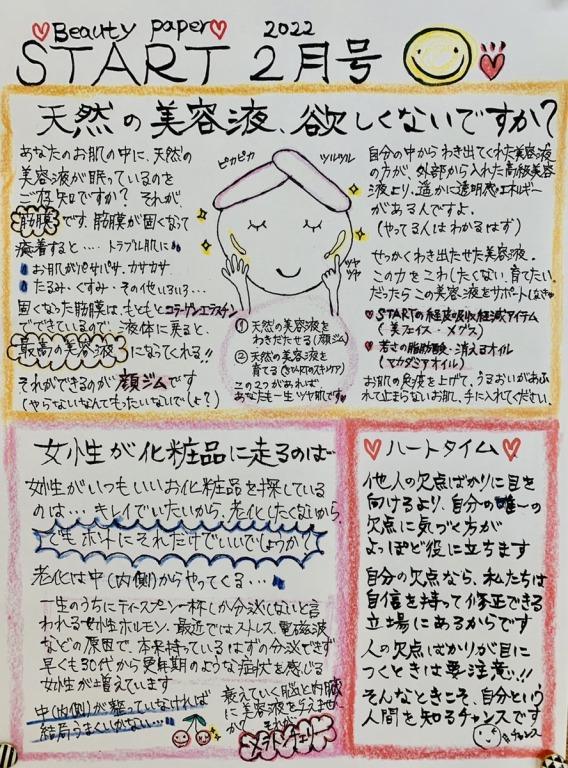 Beauty paper 2022
START 2月号
天然の美容液、欲しくないですか?
あなたのお肌の中に、天然の
美容液が眠っているのを
ご存知ですか? それが、
筋膜です。筋膜が固くなって
癒着すると… トラブル肌に
お肌がパサパサ、カサカサ
たるみ・くすみ・その他いろいろ…
固くなった筋膜は、もともとコラーゲンエラスチン
でできているので、液体に戻ると、
最高の美容液になってくれる!!
それができるのが顔ジムです
(やらないなんてもったいないでしょ?)
ピカピカ ツルツル
ツヤツヤ
① 天然の美容液を
わきだたせる(顔ジム)
② 天然の美容液を
育てる(STARTのスキンケア)
この2つがあれば、
あなたも一生ツヤ肌です
自分の中からわき出てくれた美容液
の方が、外部から入れた高級美容
液より、遥かに透明感・エネルギー
があるんですよ。
(やってる人はわかるはず)
せっかくわき出たせた美容液。
この力をこわしたくない、育てたい、
だったらこの美容液をサポートしなきゃ
STARTの経皮吸収軽減アイテム
(美フェイス・メグス)
若さの脂肪酸・消えるオイル
(マカダミアオイル)
お肌の免疫を上げて、うるおいがあふ
れて止まらないお肌、手に入れてください。
女性が化粧品に走るのは
女性がいつもいいお化粧品を探している
のは… キレイでいたいから、老化したくないから、
でもホントにそれだけでいいでしょうか?
老化は中(内側)からやってくる…
一生のうちにティースプーン一杯しか分泌しないと言
われる女性ホルモン。最近ではストレス、電磁波
などの原因で、本来持っているはずの分泌できず
早くも30代から更年期のような症状を感じる
女性が増えています
中(内側)が整っていなければ
結局うまくいかない…
衰えていく脳と内臓
に美容液を与えません
か? それが
チェリー
ハートタイム
他人の欠点ばかりに目を
向けるより、自分の唯一の
欠点に気づく方が
よっぽど役に立ちます
自分の欠点なら、私たちは
自信を持って修正できる
立場にあるからです
人の欠点ばかりが目に
つくときは要注意!!
そんなときこそ、自分という
人間を知るチャンスです
チャンス